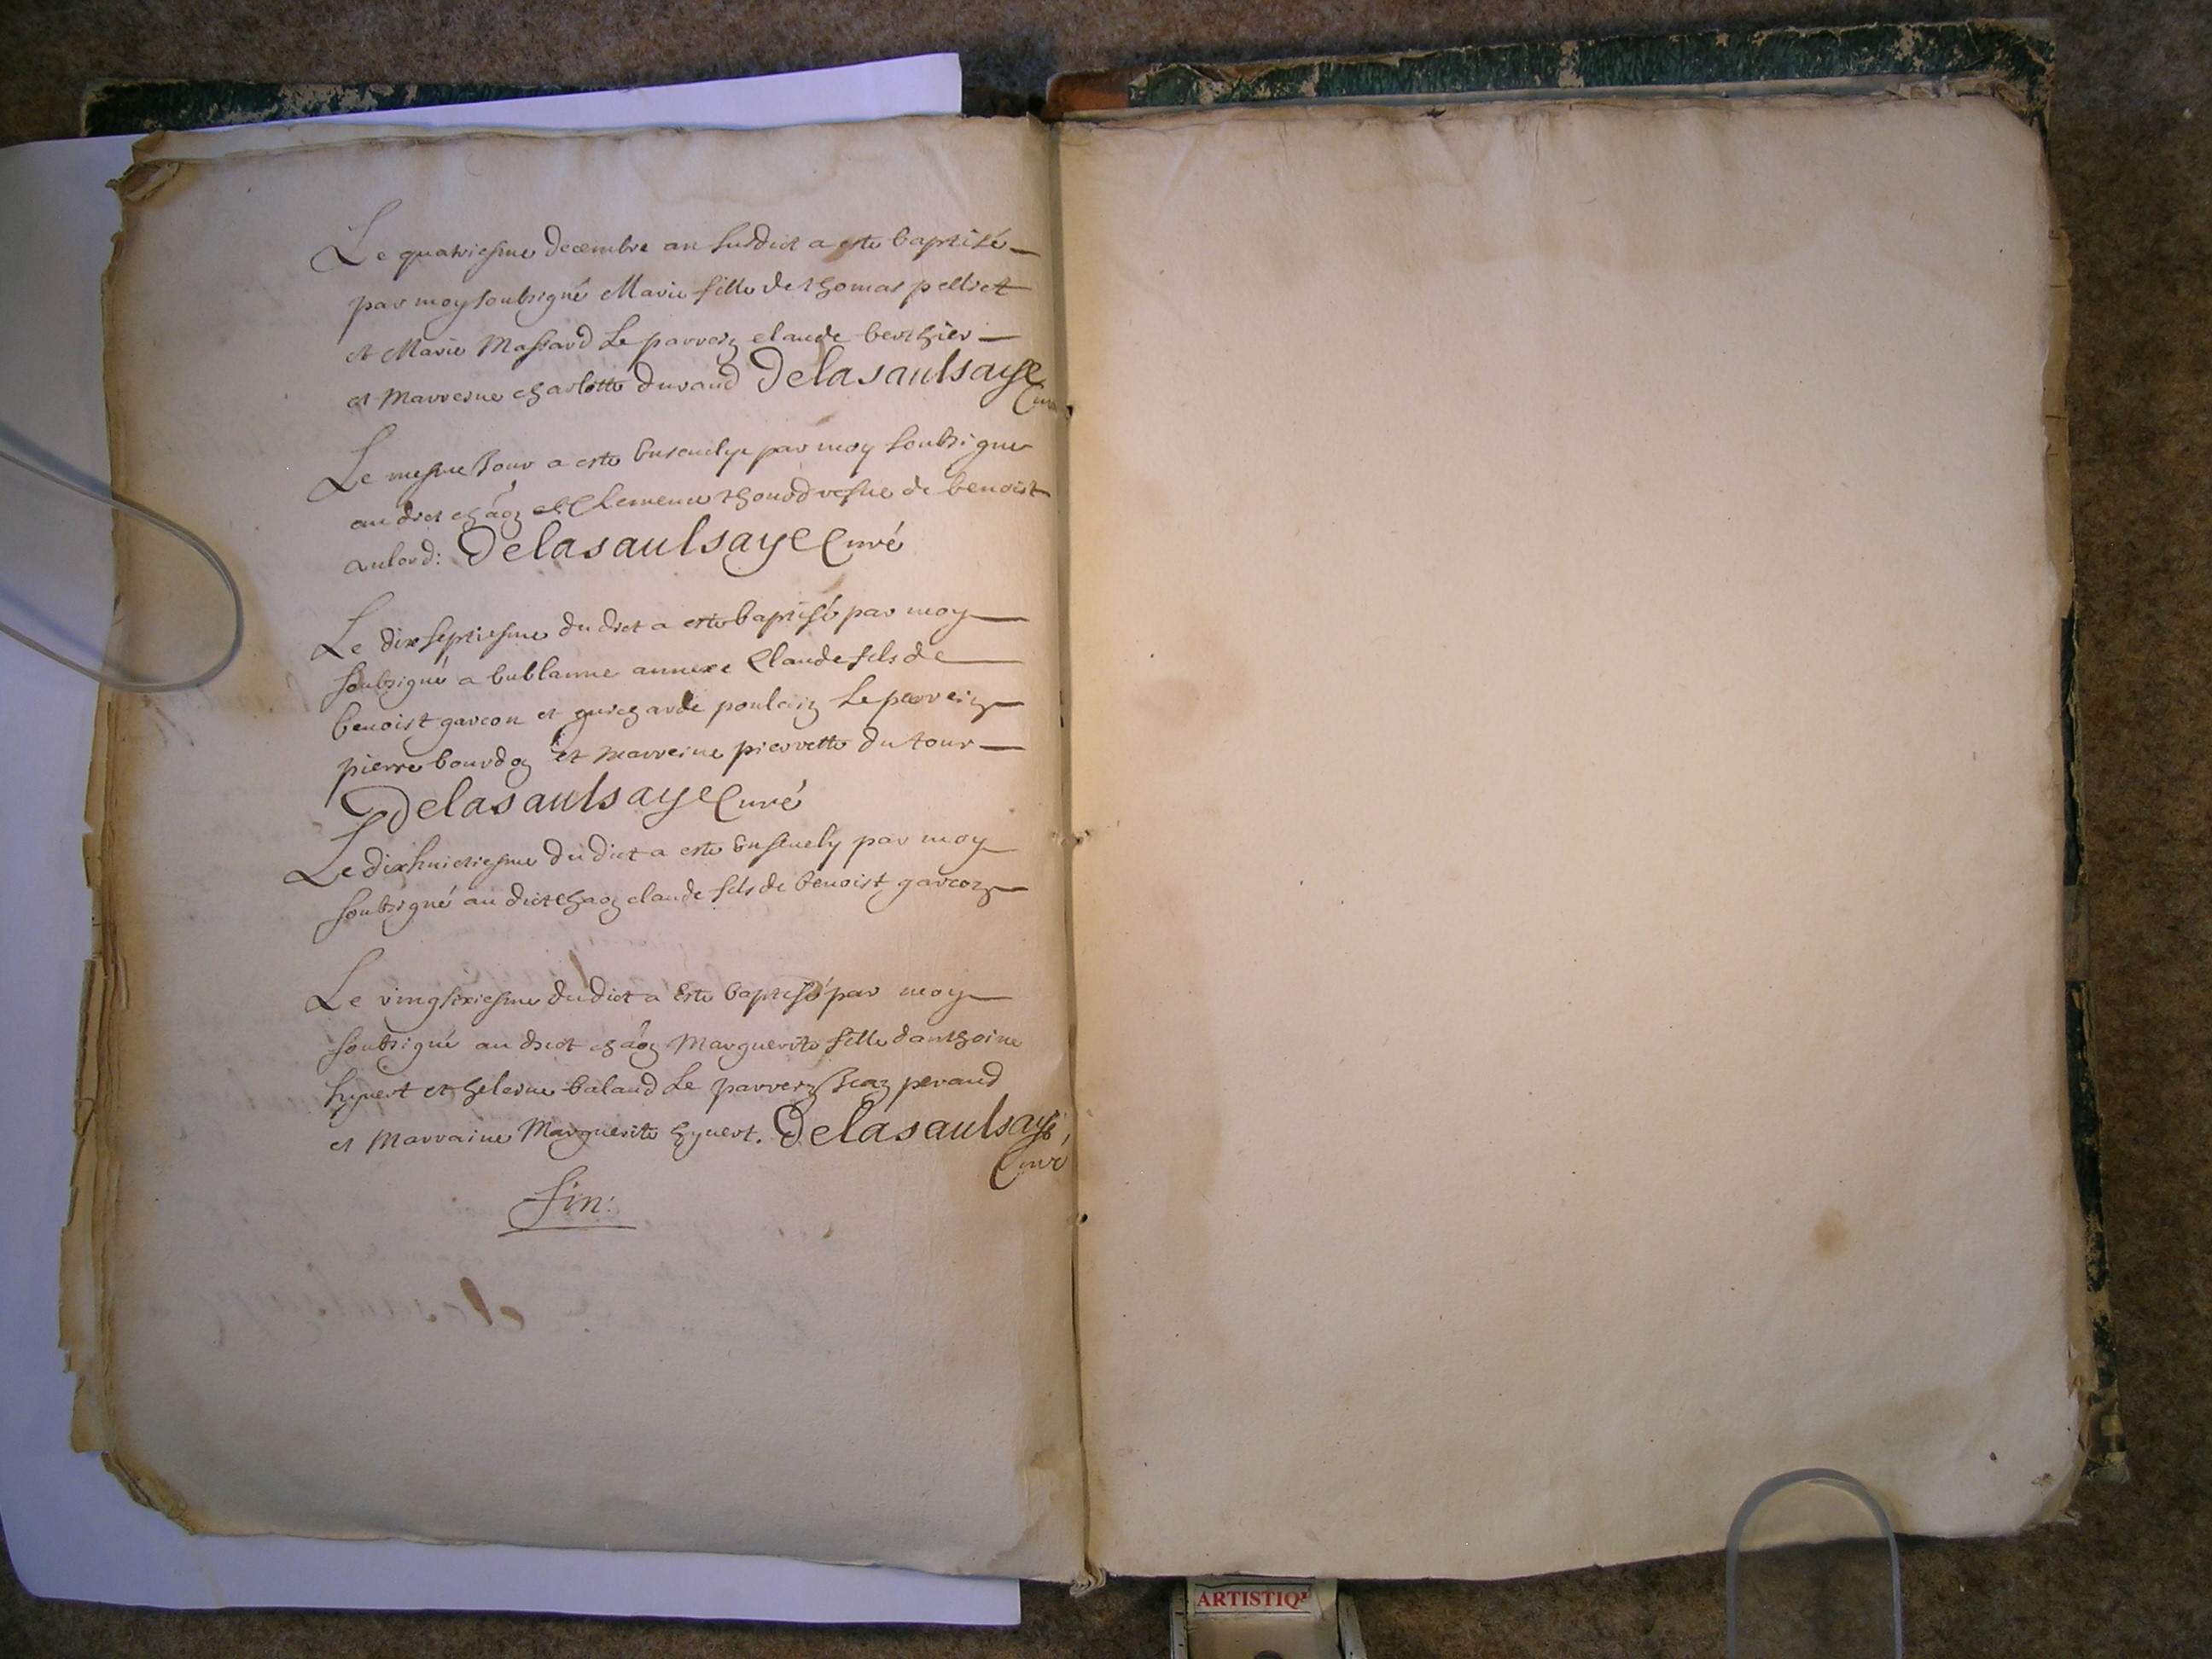 Le quatriesme decembre an susdict a este baptisé
par moy soubsigné Marie fille de thomas pelliet
et Marie Massard Le parrein claude berthier
et Marreine charlotte durand Delasaulsaye
Curé
Le mesme Jour a este Ensevelye par moy soubsigne
au dict chãõ Clemence thourd vesve de benoist
aulord: Delasaulsaye Curé
Le dixseptiesme du dict a este baptisé par moy
soubsigné a bublanne annexe Claude fils de
benoist garcon et guicharde poulein Le parrein
pierre bourdon et marreine pierrette du tour
Delasaulsaye Curé
Le dixhuictiesme du dict a este Ensevely par moy
soubsigné au dict chaõ claude fils de benoist garcon
Le vingsixiesme du dict a Este baptisé par moy
soubsigné au dict chãõ Marguerite fille d'anthoine
hyvert et heleine baland Le parrein Jean peraud
et Marraine Marguerite hyvert. Delasaulsaye,
Curé
fin:
ARTISTIQ